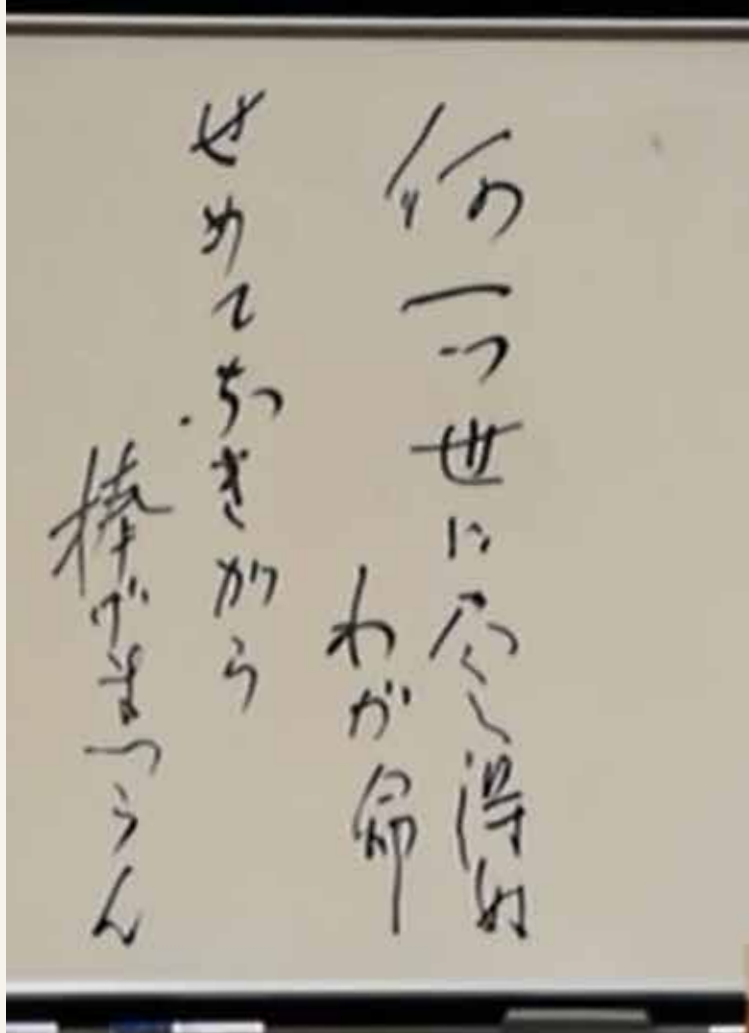 何一つ世に尽し得ぬ
わが命
せめてあきがら
捧げまつらん